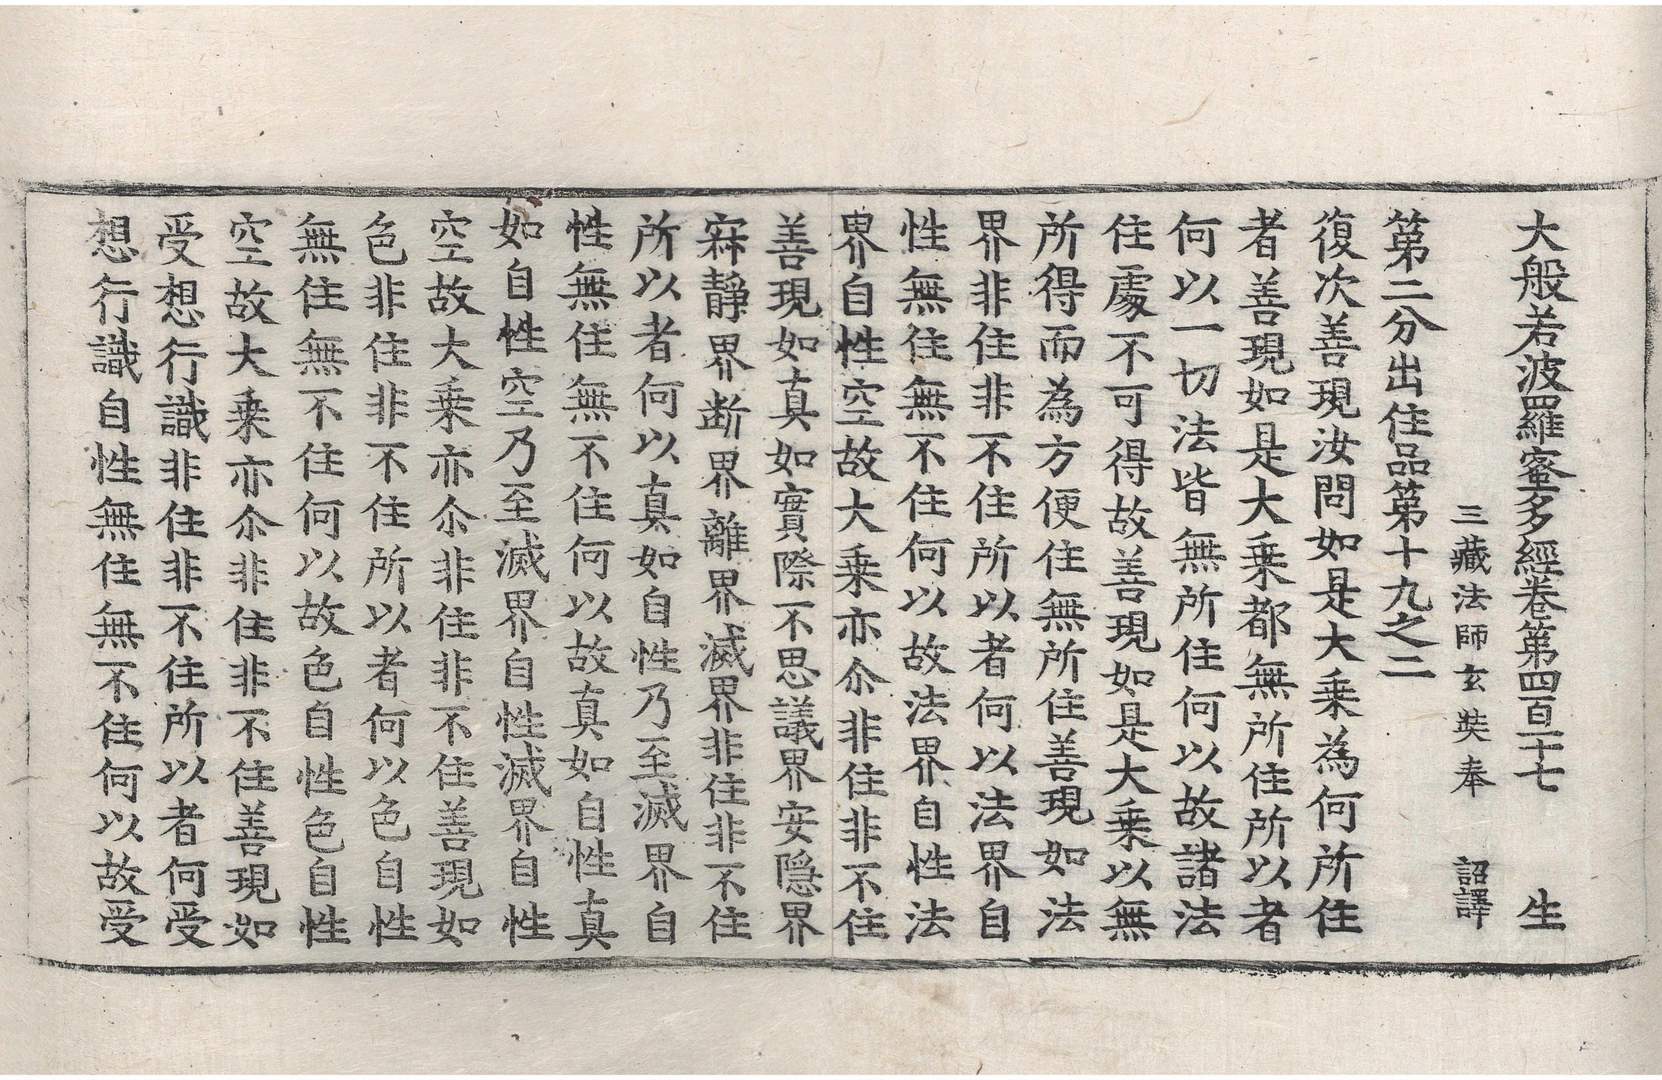 大般若波羅蜜多經卷第四百一十七　生
三藏法師玄奘奉　詔譯
第二分出住品第十九之二
復次善現汝問如是大乘為何所住
者善現如是大乘都無所住所以者
何以一切法皆無所住何以故諸法
住處不可得故善現如是大乘以無
所得而為方便住無所住善現如法
界非住非不住所以者何以法界自
性無住無不住何以故法界自性法
界自性空故大乘亦尒非住非不住
善現如真如實際不思議界安隱界
寂靜界断界離界滅界非住非不住
所以者何以真如自性乃至滅界自
性無住無不住何以故真如自性真
如自性空乃至滅界自性滅界自性
空故大乘亦尒非住非不住善現如
色非住非不住所以者何以色自性
無住無不住何以故色自性色自性
空故大乘亦尒非住非不住善現如
受想行識非住非不住所以者何受
想行識自性無住無不住何以故受